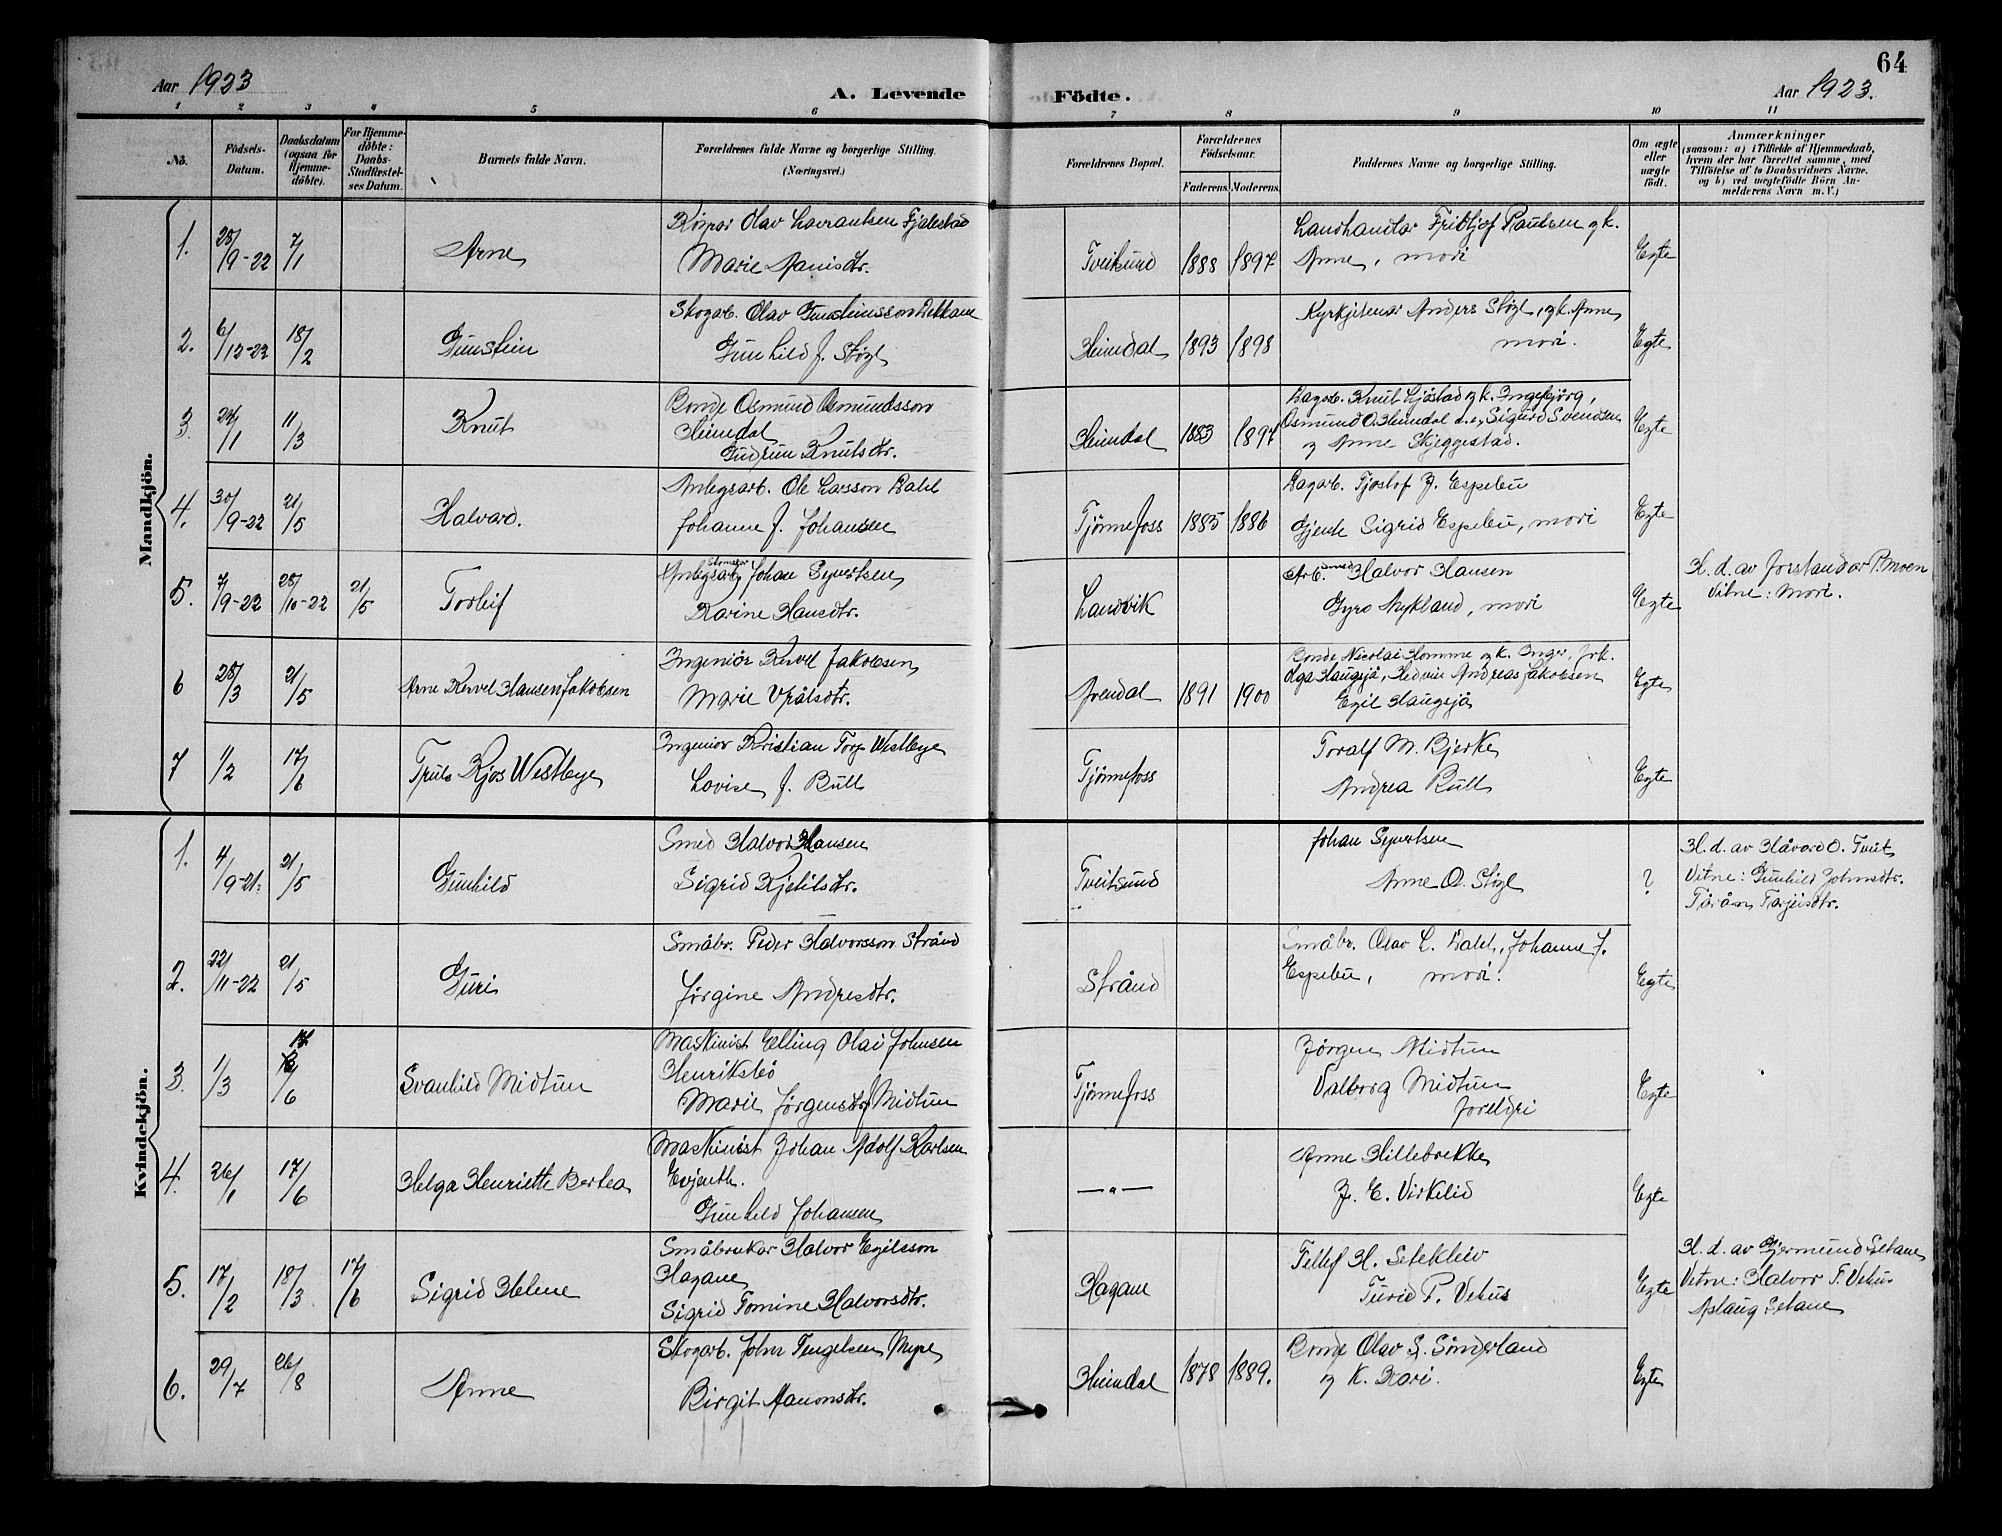 64
Aar 1923
A. Levende Födte.
Aar 1923.
1 2 3 4 5 6 7 8 9 10 11
No.
Födsels-Datum.
Daabsdatum (ogsaa for Hjemme-döbte).
For Hjemme-döbte: Daabs-Stadfæstel-ses Datum.
Barnets fulde Navn.
Forældrenes fulde Navne og borgerlige Stilling. (Næringsvei.)
Forældrenes Bopæl.
Forældrenes Födselsaar.
Faderens. Moderens.
Faddernes Navne og borgerlige Stilling.
Om ægte eller uægte födt.
Anmærkninger
(saasom: a) i Tilfælde af Hjemmedaab, hvem der har forrettet samme, med Tilföielse af to Daabsvidners Navne, og b) ved uægtefödte Börn An-melderens Navn m. V.)
Mandkjön.
1. 28/9-22 7/1 Arne
Olav Lavrantsen Fjalestad
Marie Aanisdtr.
Tveitsund 1888 1897
Landhandlar Fridtjof Paulsen og k.
Anne, mori
Egte
2. 6/12-22 18/2 Gunstein
Skogarb. Olav Gunsteinsson
Gunhild J. Støyl
Heimdal 1893 1898
Kyrkjetenar Anders Støyl, og k. Anne,
mori.
Egte
3. 24/1 11/3 Knut
Bonde Osmund Osmundsson
Heimdal
Gudrun Knutsdtr.
Heimdal 1883 1897
Dagarb. Knut Ljøstad og k. Ingebjørg,
Osmund O. Heimdal d.e., Sigurd Svendsen
og Anne Skjeggestad.
Egte
4. 30/9-22 21/5 Halvard.
Anlegsarb. Ole Larsson Dahl
Johanne J. Johansen
Tjönnefoss 1885 1886
Dagarb. Tjostof J. Espebu
Gjente Sigrid Espebu, mori
Egte
5. 7/9-22 28/10-22 21/5 Torleif
Anlegsarb. Johan Syvertsen,
Karine Hansdtr.
Landvik
Arb. smed Halvor Hansen
Gyro Nykland, mori
Egte
H. d. av forstandar P. Moen
Vitne: Mori.
6 28/3 21/5 Arne Kervel Hansen Jakobsen
Ingeniör Kervel Jakobsen,
Marie Vrålsdtr.
Arendal 1891 1900
Bonde Nicolai Homme og k. Inger, frk.
Olga Haugsjå, Hedvin Andreas Jakobsen
Egil Haugsjå
Egte
7 1/2 17/6 Truls Kjos Westbye
Ingeniör Kristian Torp Westbye
Lovise J. Bull
Tjönnefoss
Toralf M. Bjerke
Andrea Bull
Egte
Kvindekjön.
1. 4/9-21. 21/5 Gunhild
Smed Halvor Hansen
Sigrid Kjetilsdtr.
Tveitsund
Johan Syvertsen
Anne O. Støyl
?
H. d. av Håvard O. Tveit
Vitne: Gunhild Johnsdtr.
Tarjeisdtr.
2. 22/11-22 21/5 Guri
Småbr. Peder Halvorsson Strånd
Jørgine Andresdtr.
Strånd
Småbr. Olav L. Dahl, Johanne J.
Espebu, mori.
Egte
3. 1/3 17/6 Svanhild Midtun
Maskinist Elling Olai Johnsen
Henriksbö
Marie Jørgensdtr. Midtun
Tjönnefoss
Jörgen Midtun
Valborg Midtun
foreldri
Egte
4. 26/1 17/6 Helga Henriette Bertea
Maskinist Johan Adolf Karlsen
Evjenth.
Gunhild Johansen
— " —
Anne Hillebrekke
J. E. Virkelid
Egte
5. 17/2 18/3 17/6 Sigrid Helene
Småbrukar Halvor Egilsson
Hagane
Sigrid Tomine Halvorsdtr.
Hagane
Tellef H. Seteklev
Turid T. Vehus
Egte
H. d. av Gjermund Setane
Vitne: Halvor T. Vehus
Aslaug Setane
6. 29/7 26/8 Anne
Skogarb. John Tengelsen Myre
Birgit Aanonsdtr.
Heimdal 1878 1889.
Bonde Olav S. Sönderland
og K. Kari.
Egte